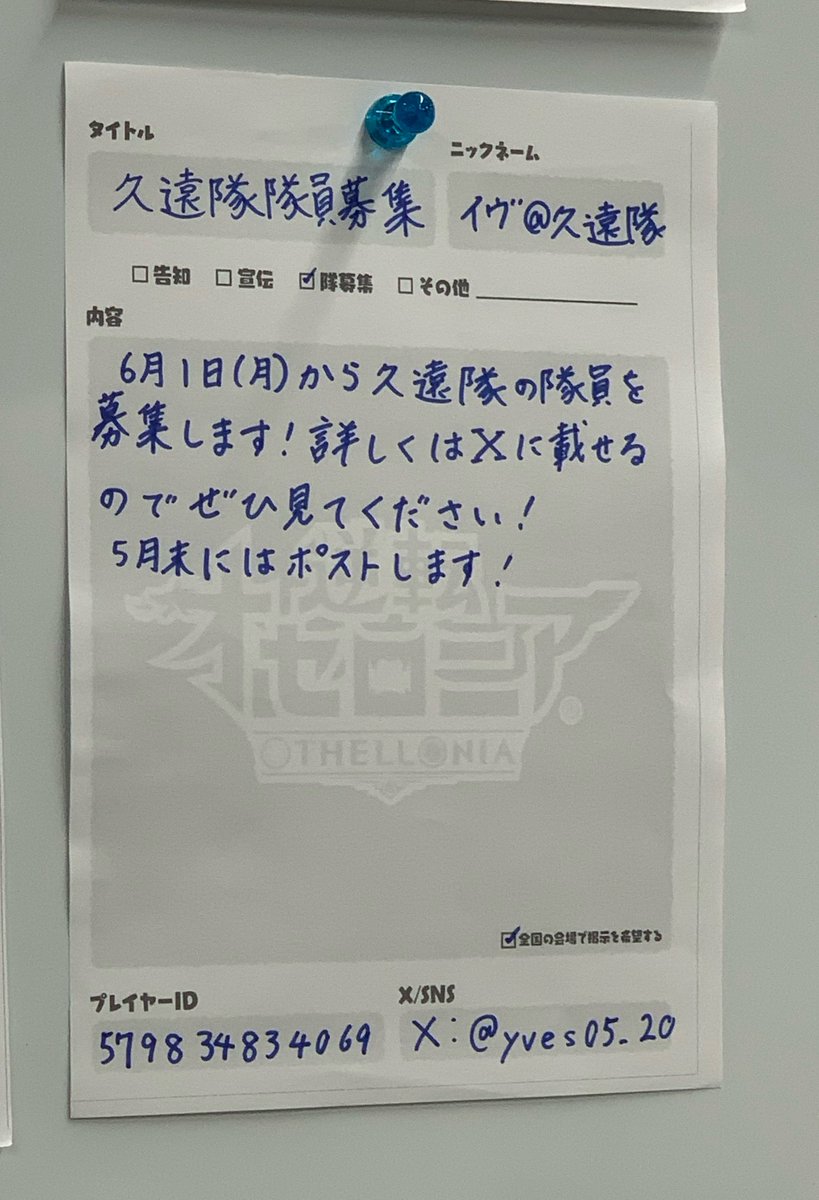 タイトル
ニックネーム
久遠隊隊員募集
イヴ@久遠隊
□告知 □宣伝 ☑隊募集 □その他
内容
6月1日(月)から久遠隊の隊員を
募集します!詳しくはXに載せる
のでぜひ見てください!
5月末にはポストします!
逆転
オセロニア
OTHELLONIA
☑全国の会場で掲示を希望する
プレイヤーID
X/SNS
579834834069
X:@yves05_20